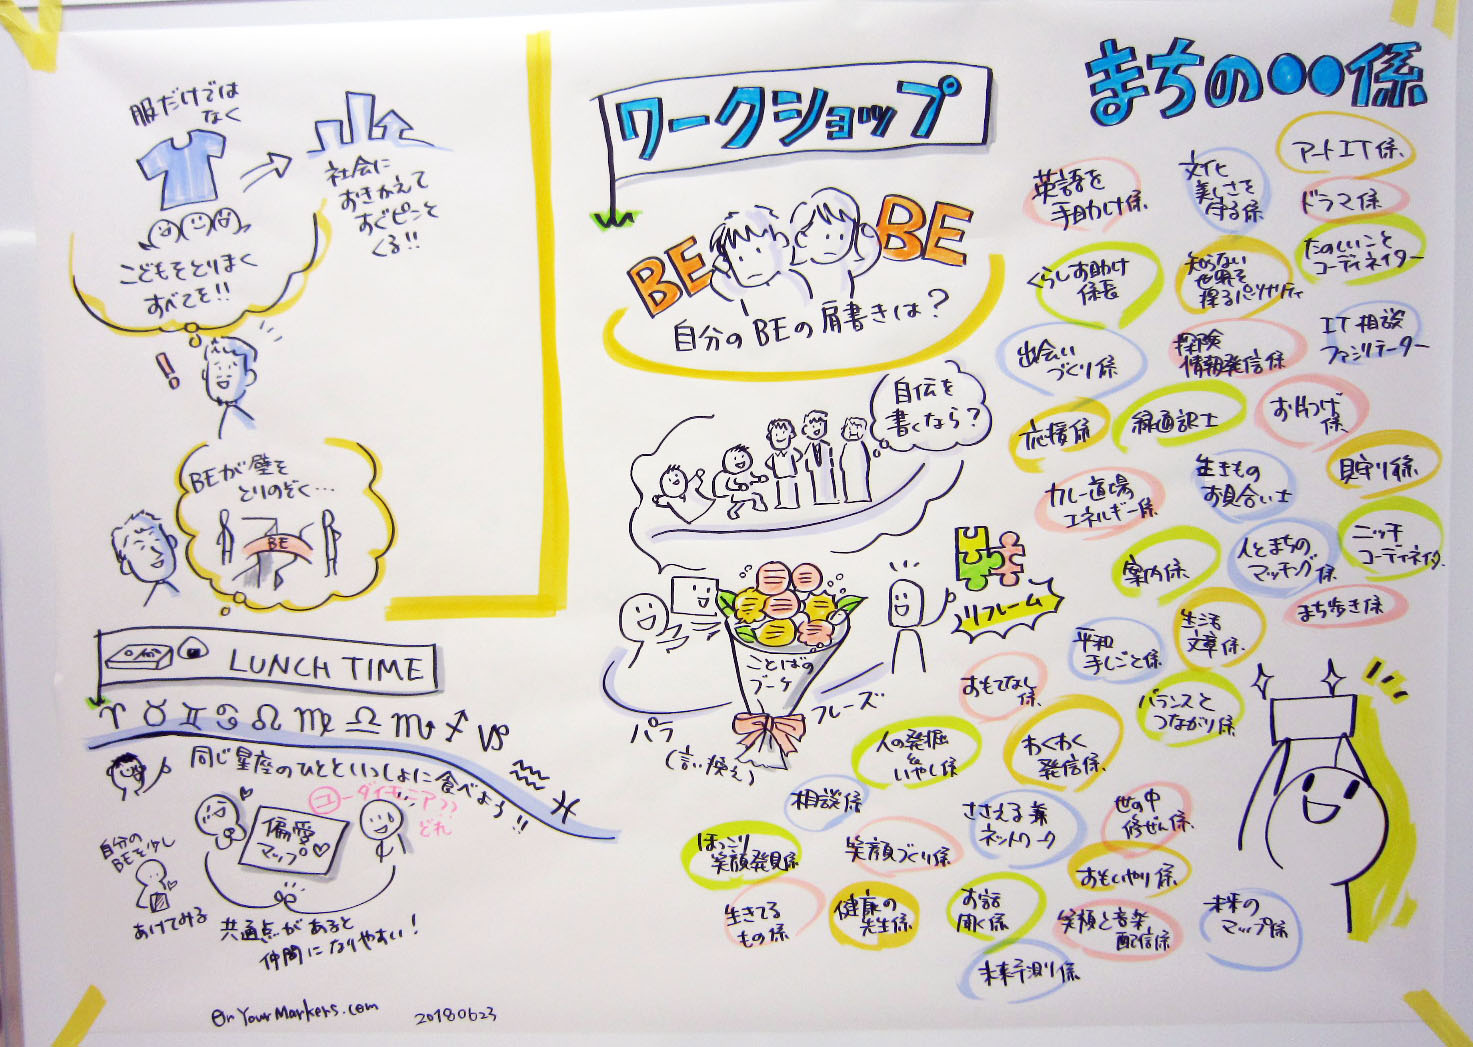 服だけでは
なく
社会に
おきかえて
すぐピンと
くる!!
こどもをとりまく
すべてを!!
!
BEが壁を
とりのぞく…
BE
LUNCH TIME
♈♉♊♋♌♍♎♏♐♑♒♓
同じ星座のひとといっしょに食べよう!!
偏愛
マップ♡
どれ
自分の
BEを少し
あけてみる
共通点があると
仲間になりやすい!
OnYourMarkers.com
20180623
ワークショップ
BE
BE
自分のBEの肩書きは?
自伝を
書くなら?
ことばの
ブーケ
パラ
(言い換え)
フレーズ
リフレーム
まちの●●係
アートIT係
英語を
手助け係
文化と
美しさを
守る係
ドラマ係
くらしお助け
係長
知らない
世界を
探るパリサティ
たのしいこと
コーディネイター
出会い
づくり係
探険
情報発信係
IT相談
ファシリテーター
応援係
緑通訳士
お片づけ
係
カレー道場
エネルギー係
生きもの
お見合い士
見守り係
案内係
人とまちの
マッチング係
ニッチ
コーディネイター
まち歩き係
平和
手しごと係
生活
文章係
おもてなし
係
バランスと
つながり係
人の発掘
&
いやし係
わくわく
発信係
相談係
ささえる兼
ネットワーク
世の中
修ぜん係
ほっこり
笑顔発見係
笑顔づくり係
おもいやり係
生きてる
もの係
健康の
先生係
お話
聞く係
笑顔と音楽
配信係
未来の
マップ係
未来予測係